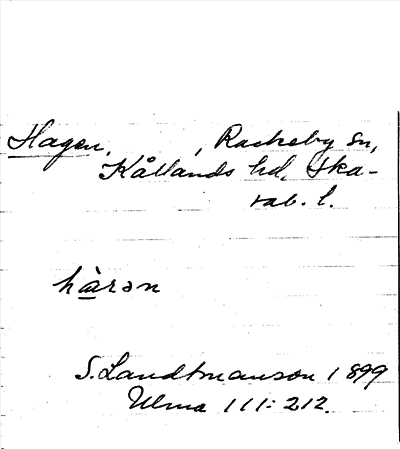 Hagen, , Rackeby sn,
Kållands hd, Ska-
rab. l.
hàrən
S. Landtmanson 1899
Ulma 111:212.